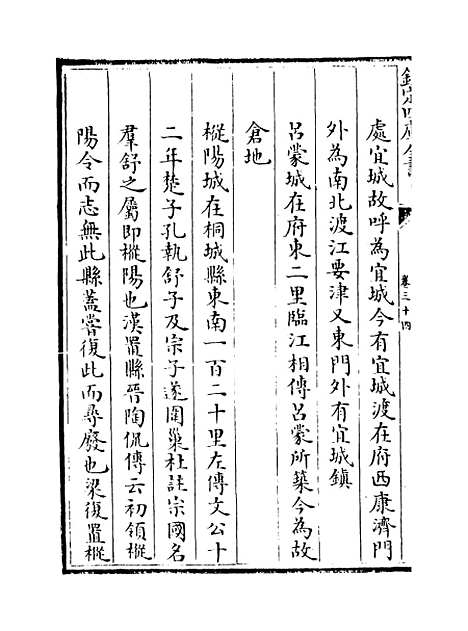 欽定四庫全書
卷三十四
處宜城故呼為宜城今有宜城渡在府西康濟門
外為南北渡江要津又東門外有宜城鎮
呂蒙城在府東二里臨江相傳呂蒙所築今為故
倉地
樅陽城在桐城縣東南一百二十里左傳文公十
二年楚子孔執舒子及宗子遂圍巢杜註宗國名
羣舒之屬即樅陽也漢置縣晉陶侃傳云初領樅
陽令而志無此縣蓋嘗復此而尋廢也梁復置樅